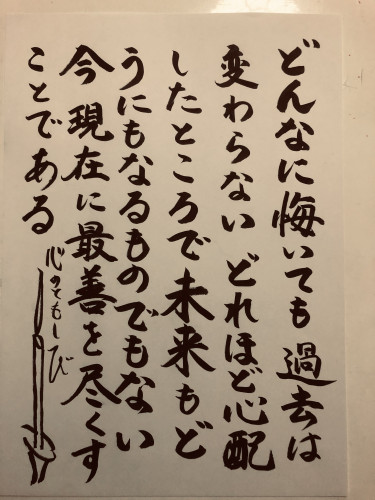 どんなに悔いても過去は
変わらない どれほど心配
したところで未来もど
うにもなるものでもない
今現在に最善を尽くす
ことである
心のともしび